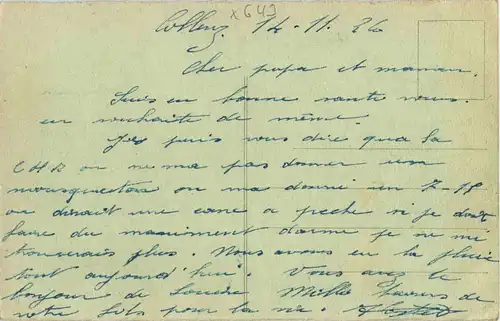 x649
Coblenz 14-11. 26
Cher papa et maman.
Suis en bonne santé vous.
en souhaite de même.
Je puis vous dire qua la
C H R on ne ma pas donner un
mousqueton on ma donné un 7-15
on dirait une cane a peche si je doit
faire du maniement darme je ne me
trouverais plus. Nous avons eu la pluie
tout aujourd'hui. Vous avez le
bonjour de Mille baisers de
votre fils pour la vie.